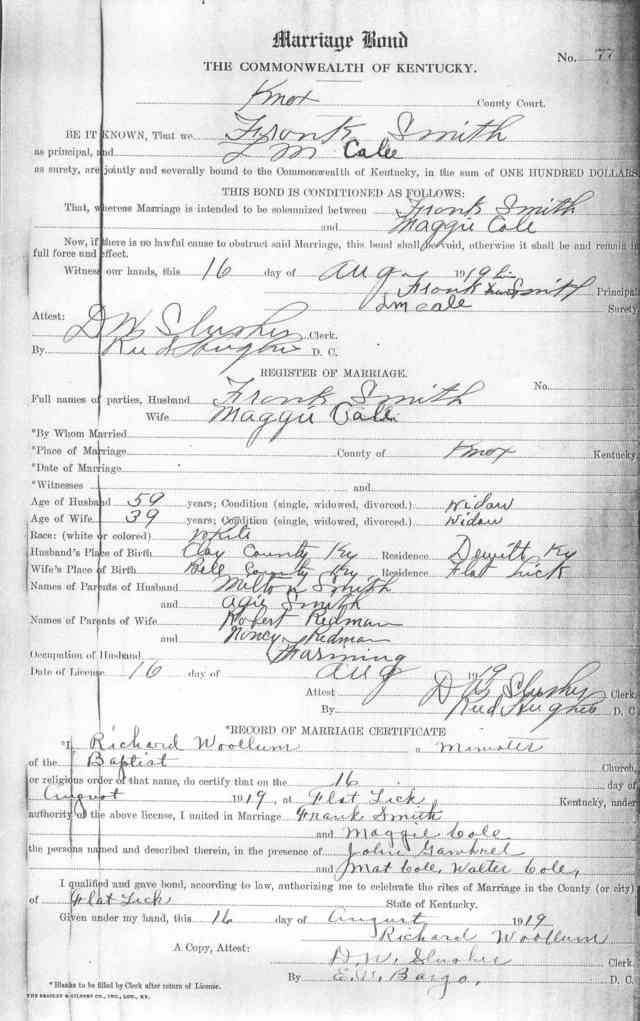 Marriage Bond
No. 77
THE COMMONWEALTH OF KENTUCKY.
Knox County Court.
BE IT KNOWN, That we Frank Smith
as principal, and L M Cole
as surety, are jointly and severally bound to the Commonwealth of Kentucky, in the sum of ONE HUNDRED DOLLARS
THIS BOND IS CONDITIONED AS FOLLOWS:
That, whereas Marriage is intended to be solemnized between Frank Smith
and Maggie Cole
Now, if there is no lawful cause to obstruct said Marriage, this bond shall be void, otherwise it shall be and remain in
full force and effect.
Witness our hands, this 16 day of Aug 1919
Frank Smith Principal
L M Cole Surety
Attest:
D W Slusher Clerk.
By Hughes D. C.
REGISTER OF MARRIAGE.
No.
Full names of parties, Husband Frank Smith
Wife Maggie Cole
*By Whom Married
*Place of Marriage County of Knox Kentucky
*Date of Marriage
*Witnesses and
Age of Husband 59 years; Condition (single, widowed, divorced.) Widow
Age of Wife 39 years; Condition (single, widowed, divorced.) Widow
Race: (white or colored) White
Husband's Place of Birth Clay County Ky Residence Dewitt Ky
Wife's Place of Birth Bell County Ky Residence Flat Lick
Names of Parents of Husband Milton Smith
and Agie Smith
Names of Parents of Wife Robert Redman
and Nancy Redman
Occupation of Husband Farming
Date of License 16 day of Aug 1919
Attest D W Slusher Clerk
By Hughes D. C
*RECORD OF MARRIAGE CERTIFICATE
*I, Richard Woollum a
of the Baptist Church,
or religious order of that name, do certify that on the 16 day of
August 1919, at Flat Lick Kentucky, under
authority of the above license, I united in Marriage Frank Smith
and Maggie Cole
the persons named and described therein, in the presence of John Gambrel
and Mat Cole, Walter Cole,
I qualified and gave bond, according to law, authorizing me to celebrate the rites of Marriage in the County (or city)
of Flat Lick State of Kentucky.
Given under my hand, this 16 day of August 1919
Richard Woollum
A Copy, Attest: D. W. Slusher Clerk.
By E. W. Bargo, D. C.
*Blanks to be filled by Clerk after return of License.
THE BRADLEY & GILBERT CO., INC., LOU., KY.